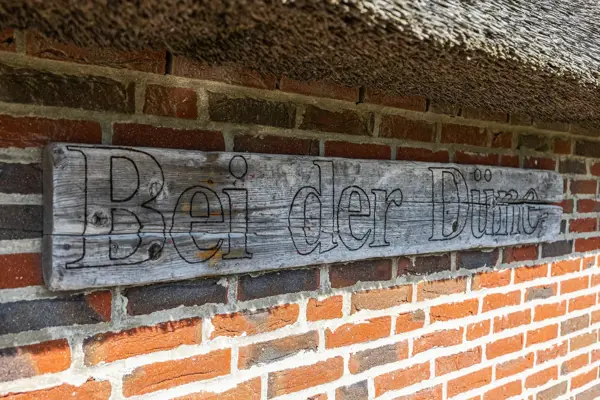 Bei der Düne